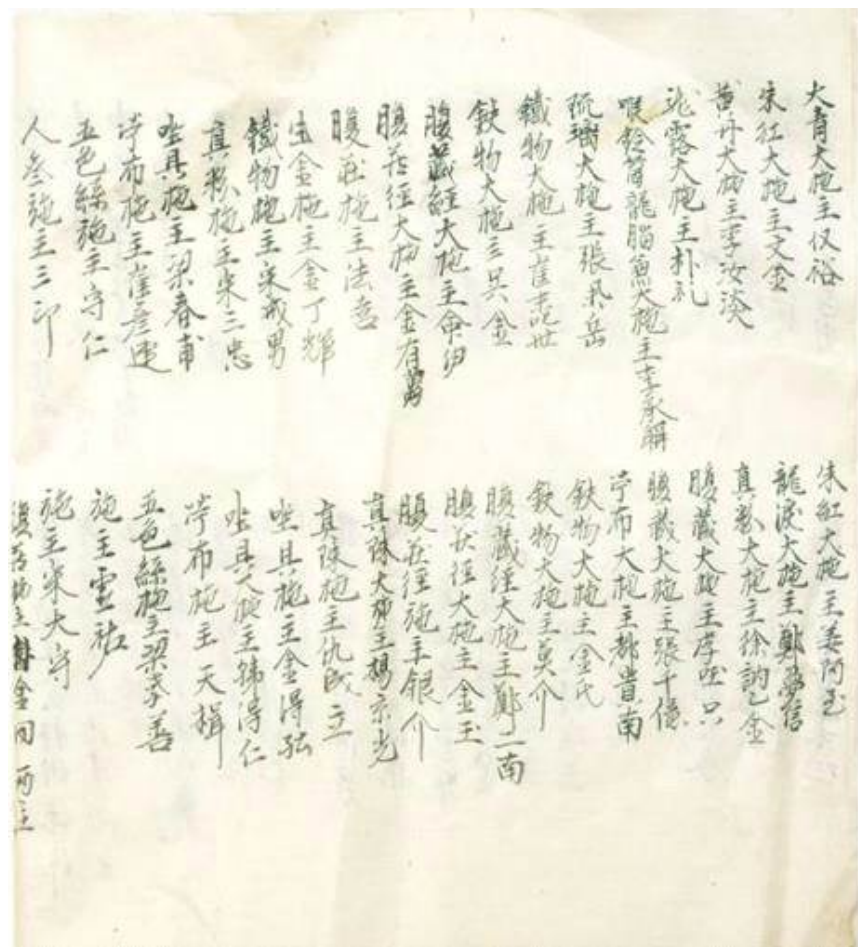 大靑大施主仅裕
朱红大施主文金
黃丹大施主李汝淡
大施主朴礼
喉鈴筒龍腦魚大施主李承
琉璃大施主張 岳
鐵物大施主崔 世
鉄物大施主吳金
腹藏經大施主
腹莊徑大施主金有萬
腹莊施主法
生金施主金丁輝
鐵物施主宋戒男
真粉施主朱三忠
坐具施主梁春甫
布施主崔彦連
五色絲施主守仁
人叅施主三印
朱紅大施主姜阿玉
龍淚大施主鄭夢信
真粉大施主徐訥金
腹藏大施主 只
腹藏大施主張千億
布大施主都貴南
鉄物大施主金氏
鉄物大施主莫介
腹藏經大施主鄭二南
腹莊徑大施主金玉
腹莊徑施主銀介
真珠大施主楊京光
真珠施主仇成立
坐具施主金得弘
坐具大施主韩得仁
布施主天楫
五色絲施主梁孝善
施主霊祐
施主宋大守
施主 金 同 兩主